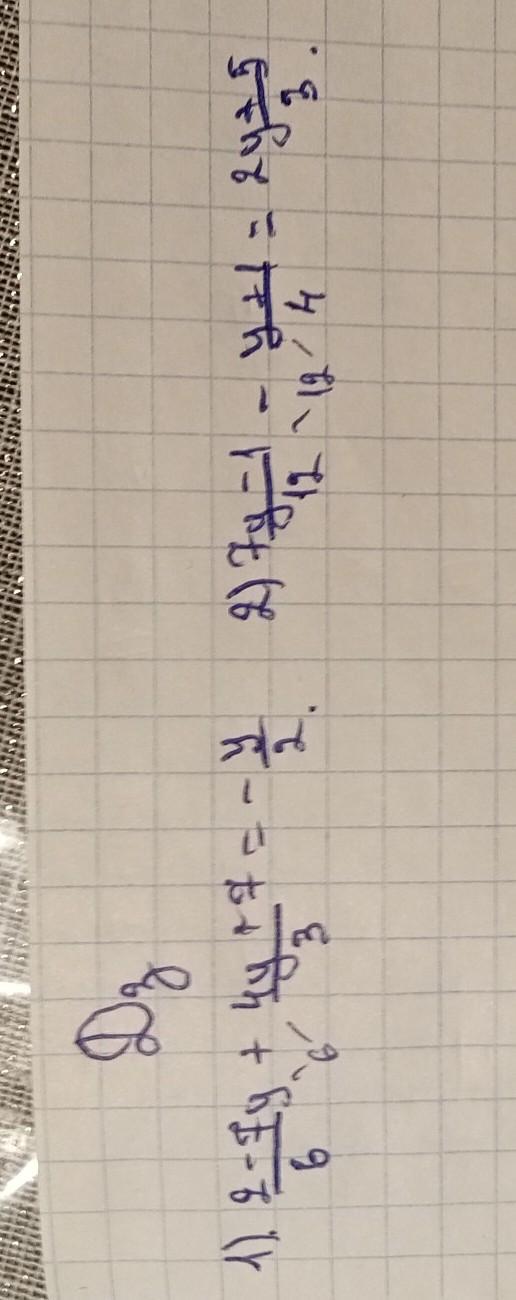 Дз
1). (2-7y)/6 + (4y+7)/3 = - y/2. 2) (7y-1)/12 - (y+1)/4 = (2y+5)/3.
6 12